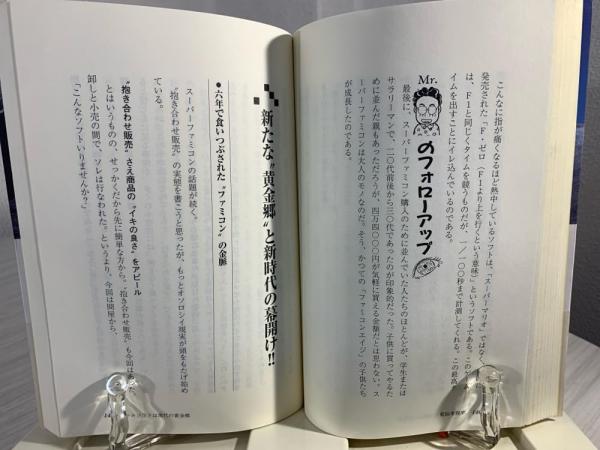 こんなに指が痛くなるほど熱中しているソフトは、「スーパーマリオ」ではなく、
発売された「F・ゼロ（F1より上を行くという意味）」というソフトである。この
は、F1と同じくタイムを競うものだが、一/一〇〇秒まで計測してくれる。この最高
イムを出すことにイレ込んでいるのである。
Mr.
のフォローアップ
最後に、スーパーファミコン購入のために並んでいた人たちのほとんどが、学生または
サラリーマンで、二〇代前後から三〇代であったのが印象的だった。子供に買ってやるた
めに並んだ親もあっただろうが、四万四〇〇〇円が気軽に買える金額だとは思わない。ス
ーパーファミコンは大人のモノなのだ。そう、かつての「ファミコンエイジ」の子供たち
が成長したのである。
新たな"黄金郷"と新時代の幕開け!!
●六年で食いつぶされた"ファミコン"の金脈
スーパーファミコンの話題が続く。
"抱き合わせ販売"の実態を書こうと思ったが、もっとオソロシイ現実が頭をもたげ始め
ている。
"抱き合わせ販売"さえ商品の"イキの良さ"をアピール
とはいうものの、せっかくだから先に簡単な方から。"抱き合わせ販売"も今回はあ
卸しと小売の間で、ソレは行なわれた。というより、今回は問屋から、
「こんなソフトいりませんか?」
は現代の黄金郷